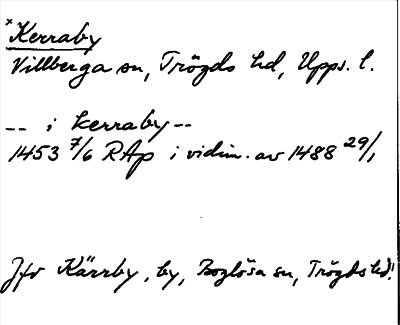 *Kerraby
Villberga sn, Trögds hd, Upps. l.
-- i kerraby --
1453 7/6 RAp i vidim. av 1488 29/1
Jfr Kärrby, by, Boglösa sn, Trögds hd!